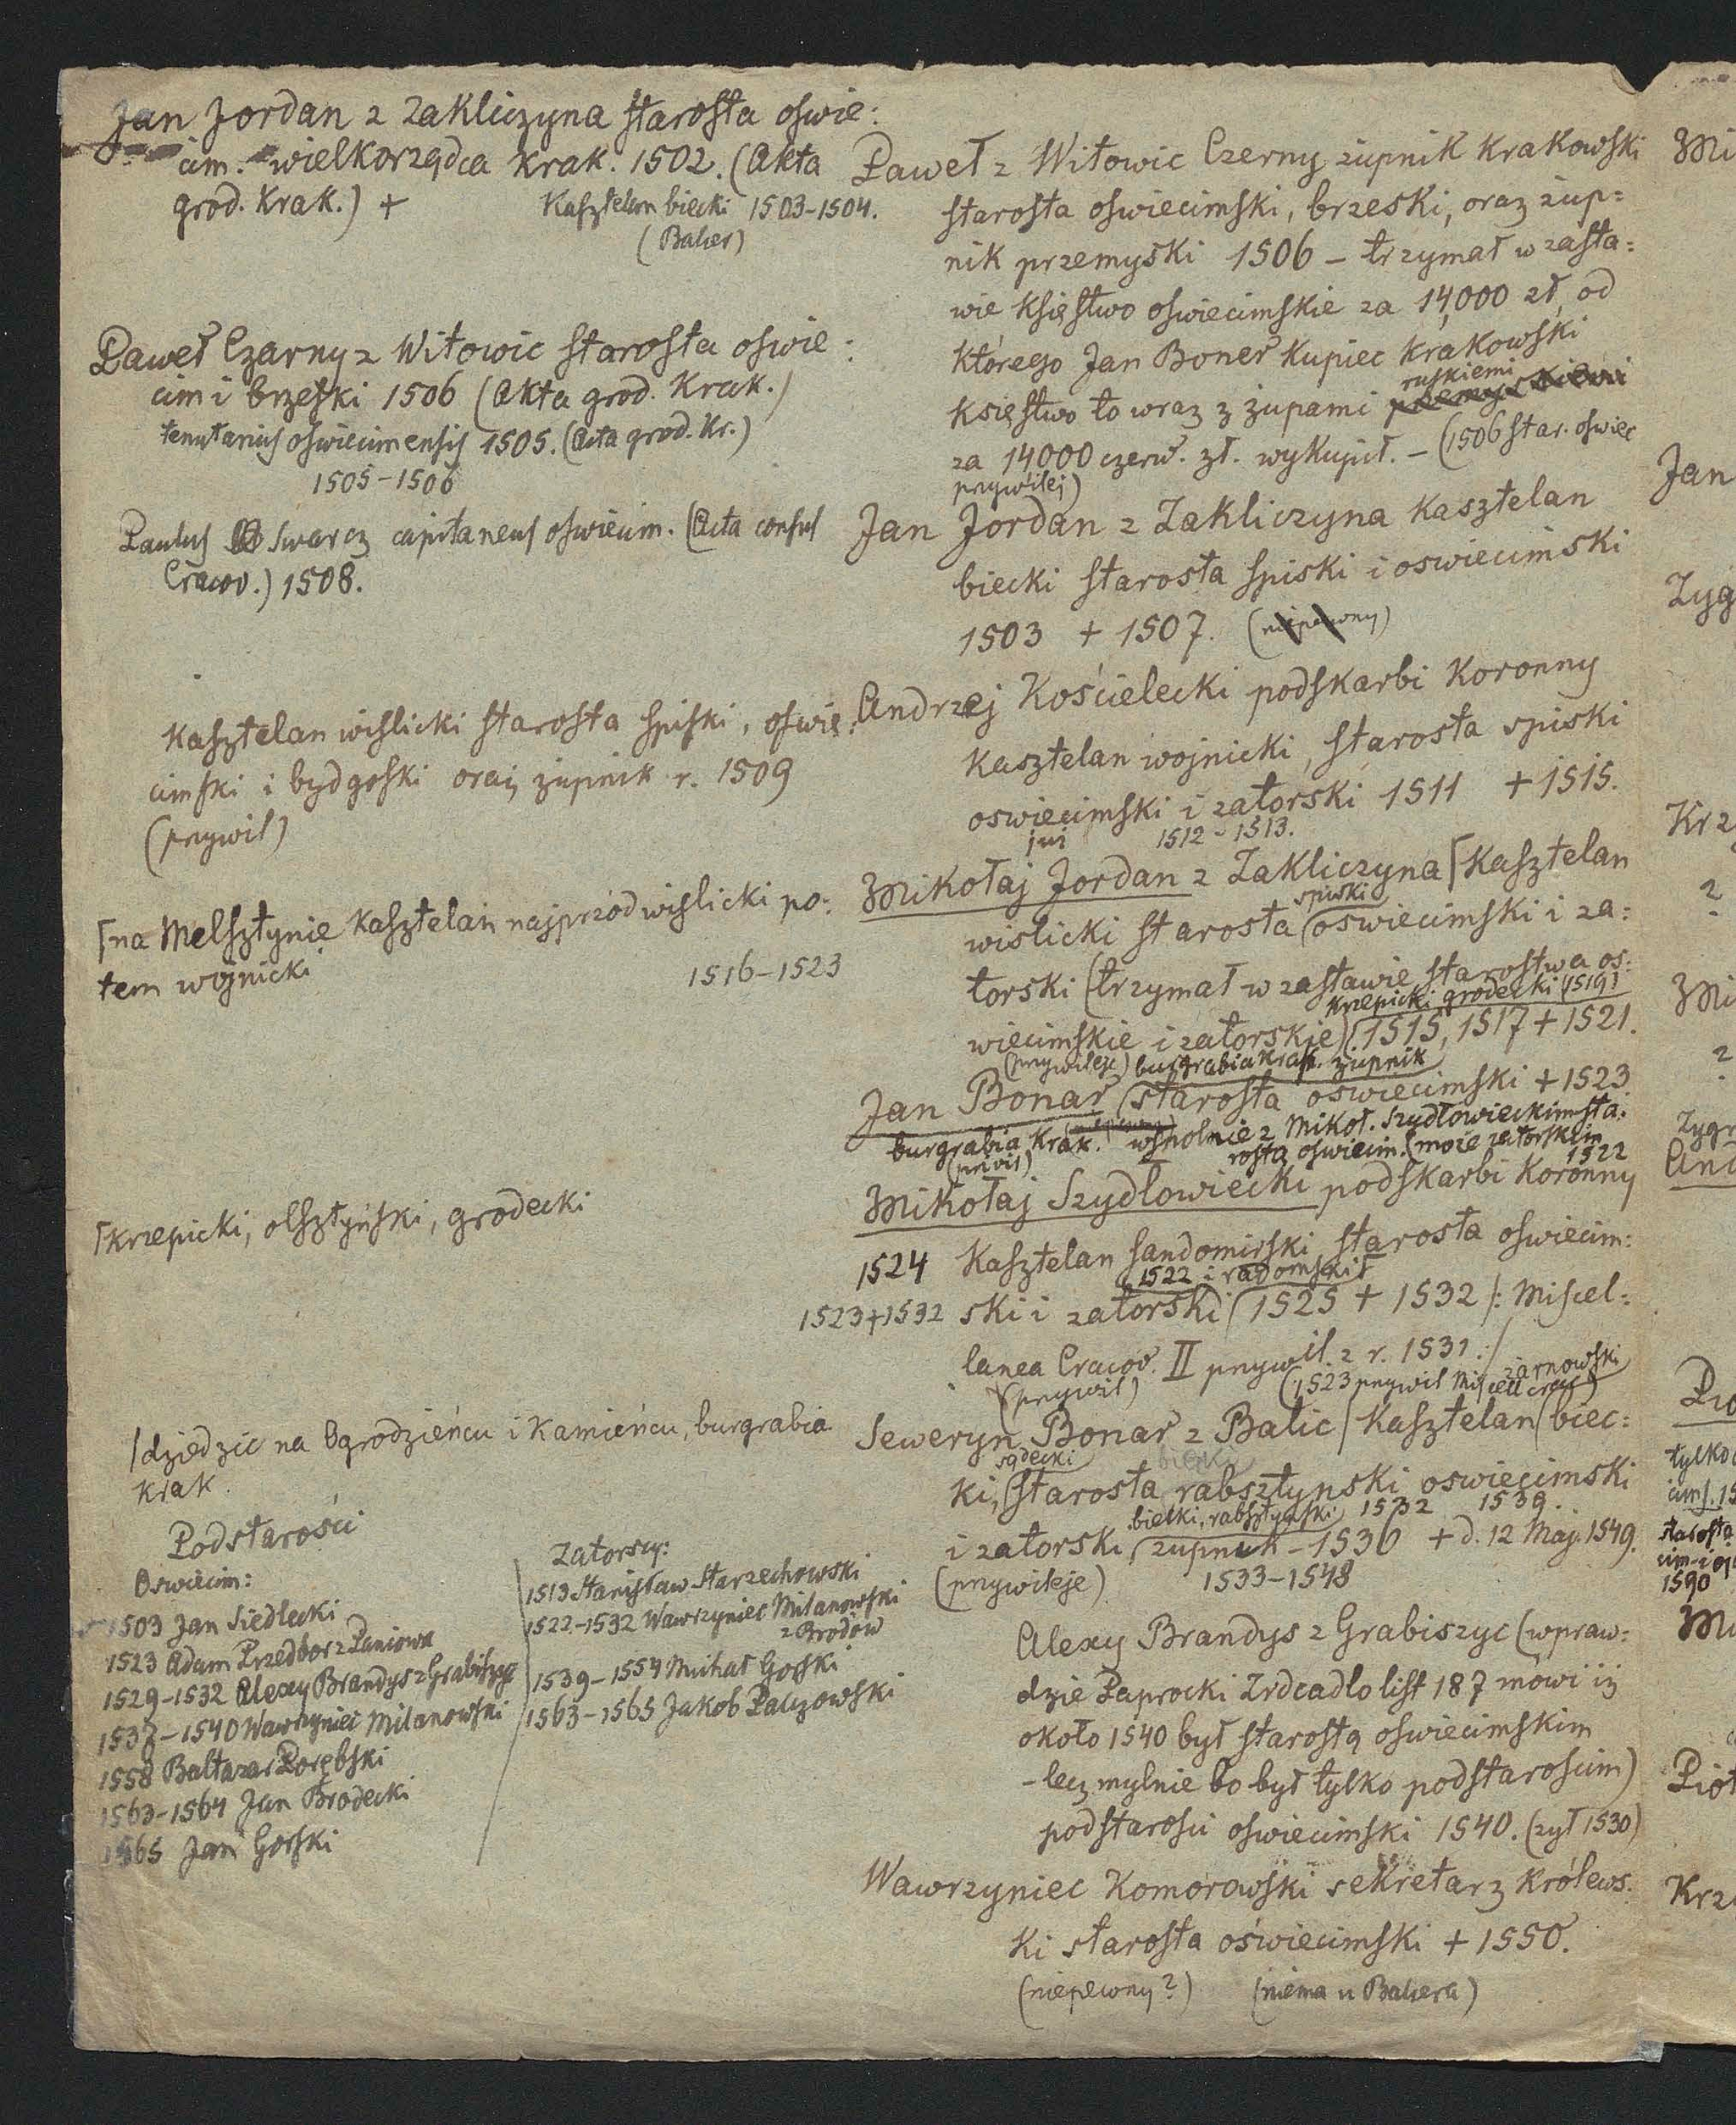 Jan Jordan z Zakliczyna starosta oswie:
cim. wielkorządca Krak. 1502. (Akta
grod. Krak.) +
Kasztelan biecki 1503-1504.
(Balier)
Paweł Czarny z Witowic starosta oswie:
cim i brzeski 1506 (Akta grod. Krak.)
tenutarius oswiecimensis 1505. (Acta grod. Kr.)
1505-1506
Paulus Swarcz capitaneus oswiecim. (Acta consul
Cracov.) 1508.
Kasztelan wislicki starosta spiski, oswię:
cimski i bydgoski oraz żupnik r. 1509
(przywil)
na Melsztynie kasztelan najprzód wislicki po:
tem wojnicki
1516-1523
krzepicki, olsztyński, grodecki
1524
1523+1532
dziedzic na Ogrodzieńcu i Kamieńcu, burgrabia
krak.
Podstarości
Oswiecim:
1503 Jan Siedlecki
1523 Adam Przedbor z Paniowa
1529-1532 Alexy Brandys z Grabiszyc
1537-1540 Wawrzyniec Milanowski
1558 Baltazar Porębski
1563-1564 Jan Brodecki
1565 Jan Gorski
Zatorscy:
1513 Stanisław Starzechowski
1522-1532 Wawrzyniec Milanowski
z Brodów
1539-1554 Michał Gorski
1563-1565 Jakob Palczowski
Paweł z Witowic Czerny żupnik Krakowski
starosta oswiecimski, brzeski, oraz żup=
nik przemyski 1506 - trzymał w zasta:
wie księstwo oswiecimskie za 14,000 zł, od
którego Jan Boner kupiec krakowski
ruskiemi
księstwo to wraz z żupami przemyskiemi
za 14000 czerw. zł. wykupił. - (1506 star. oswiec
przywilej)
Jan Jordan z Zakliczyna Kasztelan
biecki starosta spiski i oswiecimski
1503 + 1507. (niepewny)
Andrzej Kościelecki podskarbi koronny
kasztelan wojnicki, starosta spiski
oswiecimski i zatorski 1511 + 1515.
już 1512-1513.
Mikołaj Jordan z Zakliczyna Kasztelan
spiski
wislicki starosta oswiecimski i za:
torski (trzymał w zastawie starostwa os:
krzepicki grodecki (1519)
wiecimskie i zatorskie) 1515, 1517 + 1521.
(przywileje) burgrabia krak. żupnik
Jan Bonar starosta oswiecimski + 1523
burgrabia Krak. wspolnie z Mikoł. Szydłowieckim sta:
(przwil) rostą oswiecim. (może zatorskim
1522
Mikołaj Szydłowiecki podskarbi Koronny
Kasztelan sandomirski starosta oswiecim:
1522 i radomski
ski i zatorski 1525 + 1532 /: Miscel=
lanea Cracov. II przywil. z r. 1531 :/
(przywil) (1523 przywil Miscell crac)
żarnowski
Seweryn Bonar z Balic Kasztelan biec:
sądecki
ki, starosta rabsztynski oswiecimski
bielki, rabsztyński 1532 1539.
i zatorski, żupnik - 1536 + d. 12 Maj. 1549.
(przywileje) 1533-1548
Alexy Brandys z Grabiszyc (wpraw:
dzie Paprocki Zrdcadlo list 187 mówi iż
około 1540 był starostą oswiecimskim
- lecz mylnie bo był tylko podstarosim)
podstarosci oswiecimski 1540. (żył 1530)
Wawrzyniec Komorowski sekretarz królews.
ki starosta oświecimski + 1550.
(niepewny?) (niema u Baliera)
Jan
Zyg
Krz
?
?
Zygr
And
tylko
1590
Piot
Krz